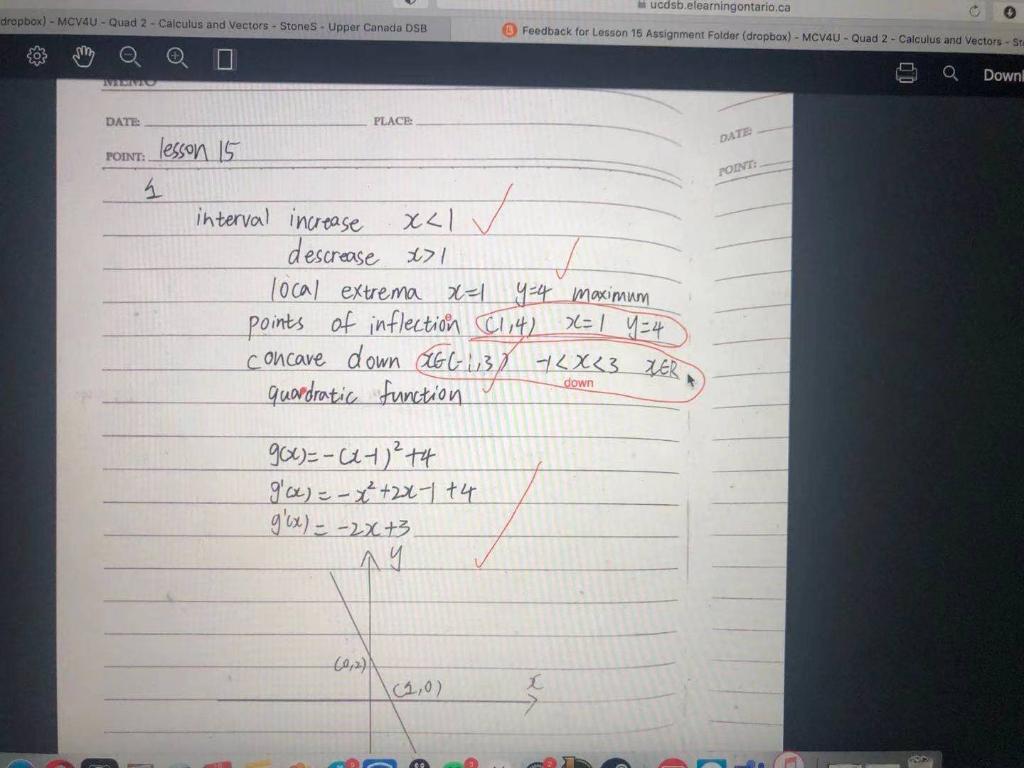 ucdsb.elearningontario.ca
dropbox) - MCV4U - Quad 2 - Calculus and Vectors - StoneS - Upper Canada DSB
Feedback for Lesson 15 Assignment Folder (dropbox) - MCV4U - Quad 2 - Calculus and Vectors - St
Downl
MEMO
DATE: PLACE:
POINT: lesson 15
DATE:
POINT:
1
interval increase x<1
descrease x>1
local extrema x=1 y=4 maximum
points of inflection (1,4) x=1 y=4
concave down x∈(-1,3) -1<x<3 x∈R
down
quadratic function
g(x)=-(x-1)²+4
g'(x)=-x²+2x-1+4
g'(x)=-2x+3
y
(0,2)
(1,0) x